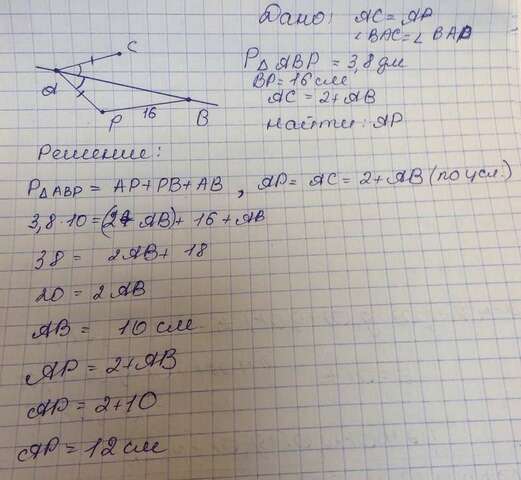 Дано: AC = AP
∠BAC = ∠BAP
P△ABP = 3,8 дм
BP = 16 см
AC = 2 + AB
Найти: AP
C
A
P
16
B
Решение:
P△ABP = AP + PB + AB, AP = AC = 2 + AB (по усл.)
3,8 · 10 = (2+ AB) + 16 + AB
38 = 2AB + 18
20 = 2AB
AB = 10 см
AP = 2 + AB
AP = 2 + 10
AP = 12 см